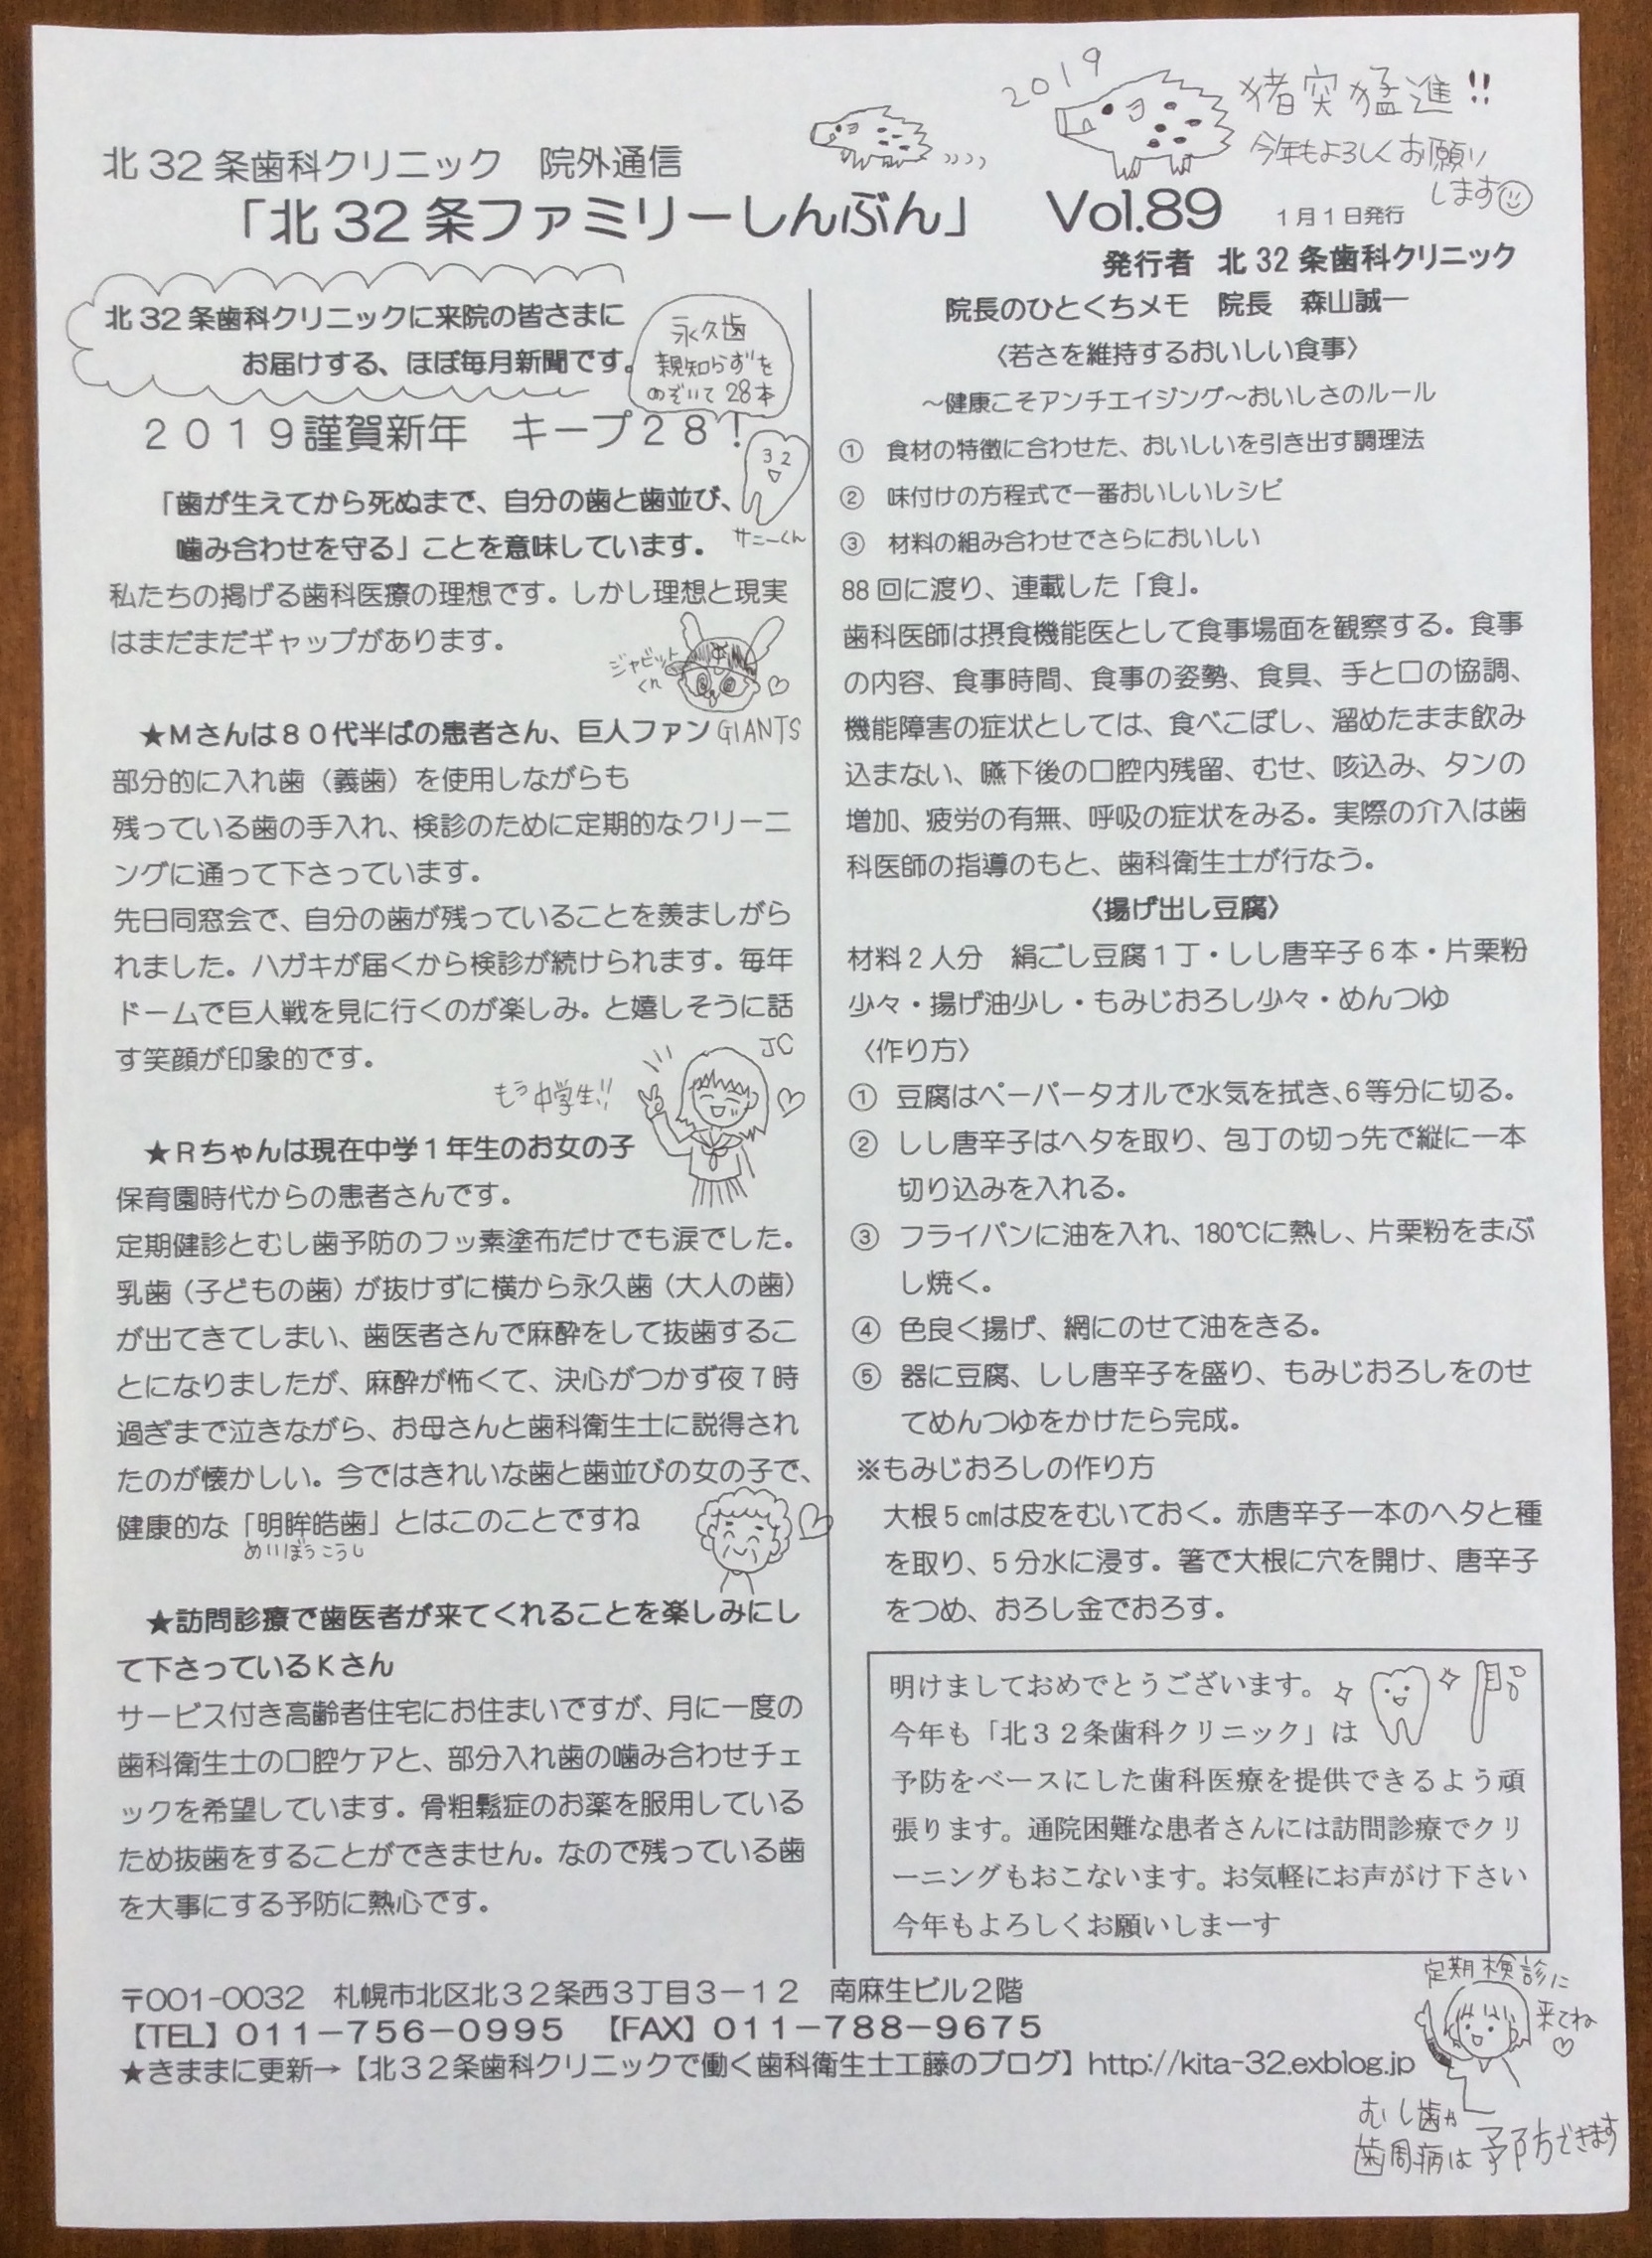 2019
猪突猛進!!
今年もよろしくお願い
します
北32条歯科クリニック　院外通信
「北32条ファミリーしんぶん」　Vol.89　1月1日発行
発行者　北32条歯科クリニック
北32条歯科クリニックに来院の皆さまに
お届けする、ほぼ毎月新聞です。
永久歯
親知らずを
のぞいて28本
２０１９謹賀新年　キープ２８！
32
サニーくん
「歯が生えてから死ぬまで、自分の歯と歯並び、
噛み合わせを守る」ことを意味しています。
私たちの掲げる歯科医療の理想です。しかし理想と現実
はまだまだギャップがあります。
ジャビット
くん
★Mさんは８０代半ばの患者さん、巨人ファン GIANTS
部分的に入れ歯（義歯）を使用しながらも
残っている歯の手入れ、検診のために定期的なクリーニ
ングに通って下さっています。
先日同窓会で、自分の歯が残っていることを羨ましがら
れました。ハガキが届くから検診が続けられます。毎年
ドームで巨人戦を見に行くのが楽しみ。と嬉しそうに話
す笑顔が印象的です。
JC
もう中学生!!
★Rちゃんは現在中学１年生のお女の子
保育園時代からの患者さんです。
定期健診とむし歯予防のフッ素塗布だけでも涙でした。
乳歯（子どもの歯）が抜けずに横から永久歯（大人の歯）
が出てきてしまい、歯医者さんで麻酔をして抜歯するこ
とになりましたが、麻酔が怖くて、決心がつかず夜７時
過ぎまで泣きながら、お母さんと歯科衛生士に説得され
たのが懐かしい。今ではきれいな歯と歯並びの女の子で、
健康的な「明眸皓歯」とはこのことですね
めいぼうこうし
★訪問診療で歯医者が来てくれることを楽しみにし
て下さっているKさん
サービス付き高齢者住宅にお住まいですが、月に一度の
歯科衛生士の口腔ケアと、部分入れ歯の噛み合わせチェ
ックを希望しています。骨粗鬆症のお薬を服用している
ため抜歯をすることができません。なので残っている歯
を大事にする予防に熱心です。
院長のひとくちメモ　院長　森山誠一
〈若さを維持するおいしい食事〉
～健康こそアンチエイジング～おいしさのルール
①　食材の特徴に合わせた、おいしいを引き出す調理法
②　味付けの方程式で一番おいしいレシピ
③　材料の組み合わせでさらにおいしい
88回に渡り、連載した「食」。
歯科医師は摂食機能医として食事場面を観察する。食事
の内容、食事時間、食事の姿勢、食具、手と口の協調、
機能障害の症状としては、食べこぼし、溜めたまま飲み
込まない、嚥下後の口腔内残留、むせ、咳込み、タンの
増加、疲労の有無、呼吸の症状をみる。実際の介入は歯
科医師の指導のもと、歯科衛生士が行なう。
〈揚げ出し豆腐〉
材料２人分　絹ごし豆腐１丁・しし唐辛子６本・片栗粉
少々・揚げ油少し・もみじおろし少々・めんつゆ
〈作り方〉
①　豆腐はペーパータオルで水気を拭き、6等分に切る。
②　しし唐辛子はヘタを取り、包丁の切っ先で縦に一本
切り込みを入れる。
③　フライパンに油を入れ、180℃に熱し、片栗粉をまぶ
し焼く。
④　色良く揚げ、網にのせて油をきる。
⑤　器に豆腐、しし唐辛子を盛り、もみじおろしをのせ
てめんつゆをかけたら完成。
※もみじおろしの作り方
大根５㎝は皮をむいておく。赤唐辛子一本のヘタと種
を取り、５分水に浸す。箸で大根に穴を開け、唐辛子
をつめ、おろし金でおろす。
明けましておめでとうございます。
今年も「北３２条歯科クリニック」は
予防をベースにした歯科医療を提供できるよう頑
張ります。通院困難な患者さんには訪問診療でクリ
ーニングもおこないます。お気軽にお声がけ下さい
今年もよろしくお願いしまーす
〒001-0032　札幌市北区北３２条西３丁目３－１２　南麻生ビル２階
【TEL】０１１－７５６－０９９５　【FAX】０１１－７８８－９６７５
★きままに更新→【北３２条歯科クリニックで働く歯科衛生士工藤のブログ】http://kita-32.exblog.jp
定期検診に
来てね
むし歯や
歯周病は予防できます